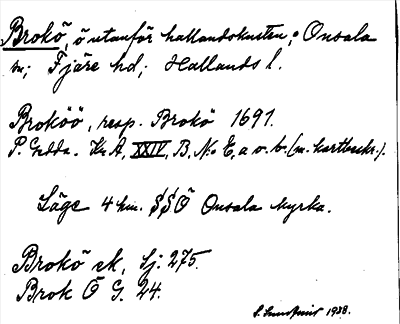 Brokö, ö utanför hallandskusten; Onsala
sn; Fjäre hd; Hallands l.
Broköö, resp. Brokö 1691.
P. Gedda. Kr. A, XXIV, B, No E, a o. b. (m. kartbeskr.).
Läge 4 km. SSÖ Onsala kyrka.
Brokö ek, Sj: 275.
Brok Ö G. 24.
1938.